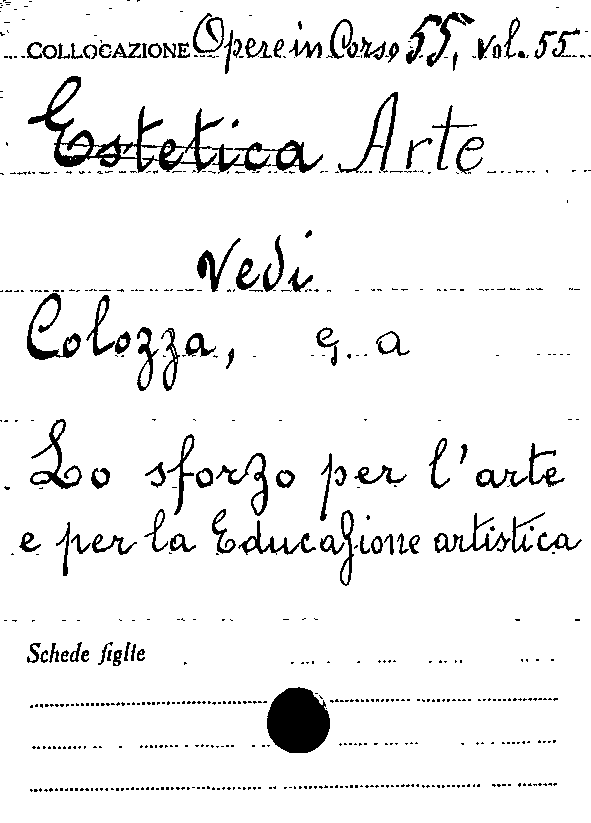 COLLOCAZIONE Opere in Corso 55, vol. 55
Estetica Arte
Vedi
Colozza, G. a
Lo sforzo per l'arte
e per la Educazione artistica
Schede figlie